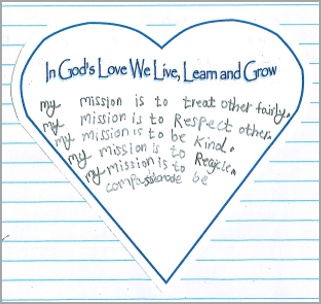 In God's Love We Live, Learn and Grow
my mission is to treat other fairly.
my mission is to Respect other.
my mission is to be kind.
my mission is to
my mission is to be
compassionate